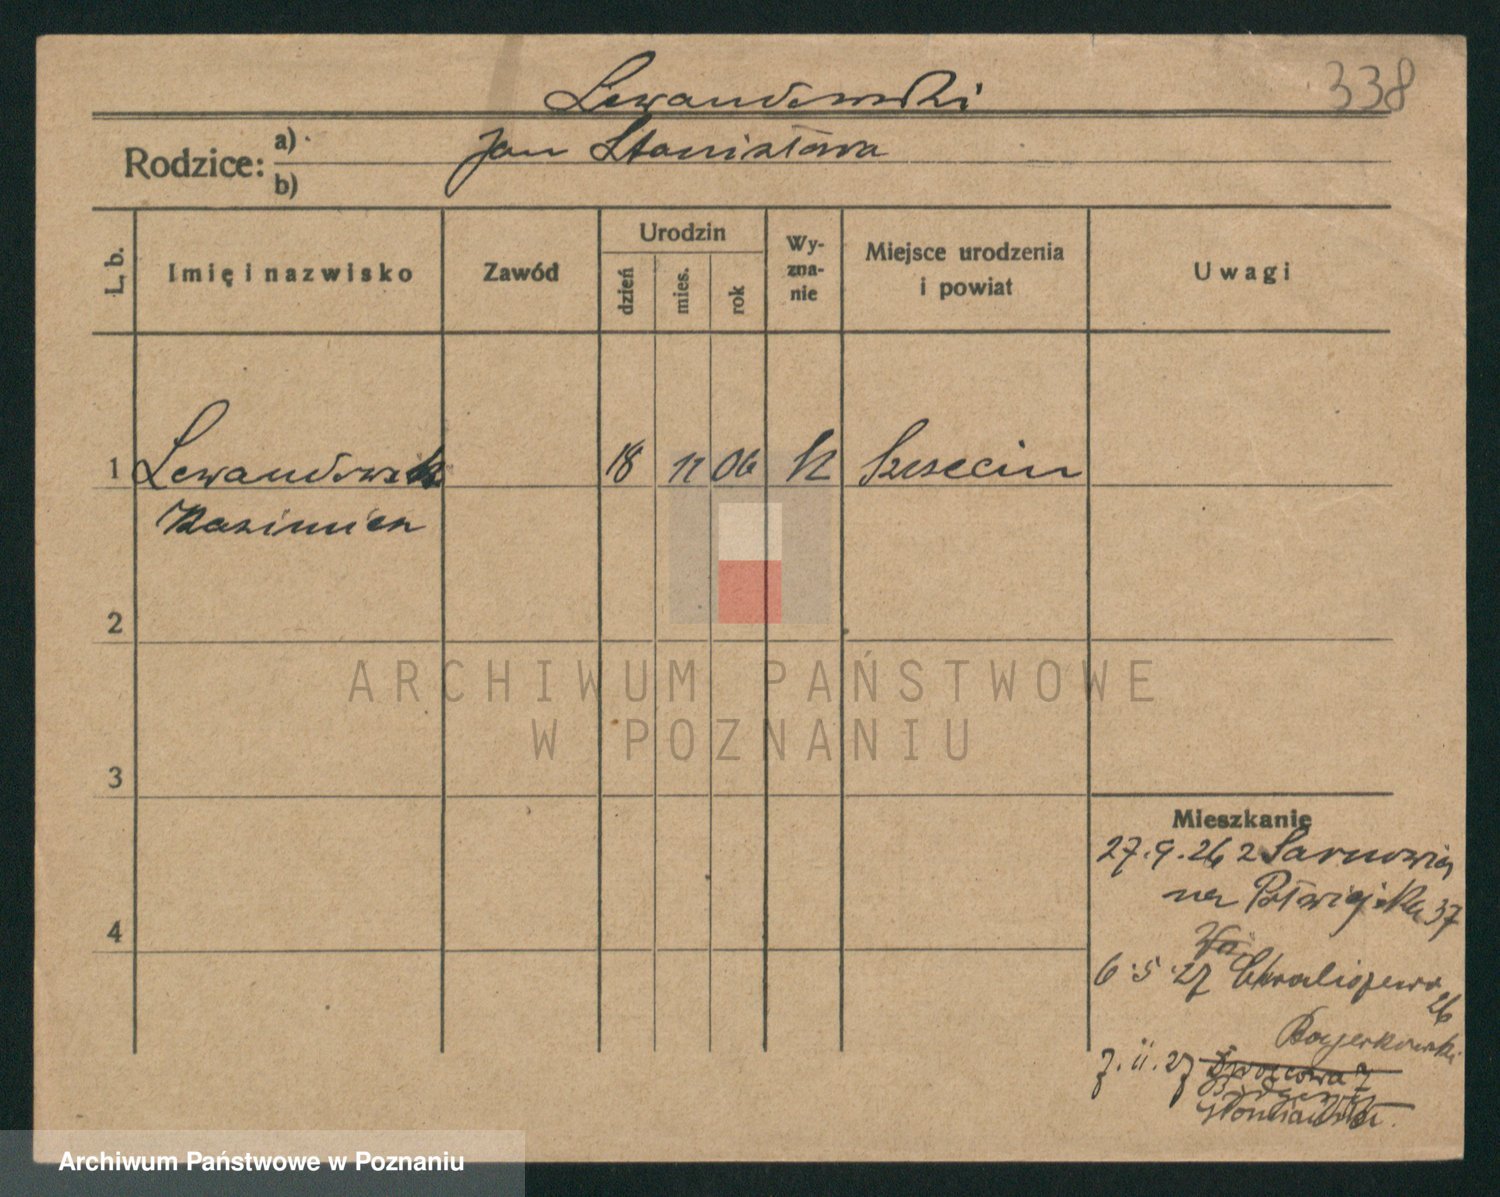 Lewandowski
338
Rodzice: a)
Jan Stanisława
b)
L. b.
Imię i nazwisko
Zawód
Urodzin
dzień
mies.
rok
Wy-
zna-
nie
Miejsce urodzenia
i powiat
Uwagi
1 Lewandowski 18 11 06 k Szczecin
Kazimierz
2
ARCHIWUM PAŃSTWOWE
W POZNANIU
3
Mieszkanie
27.9.26 z Sarnowia
na Półwiejska 37
4
6.5.27 Chwaliszewo
26
7.11.27 Dworcowa 7
Archiwum Państwowe w Poznaniu